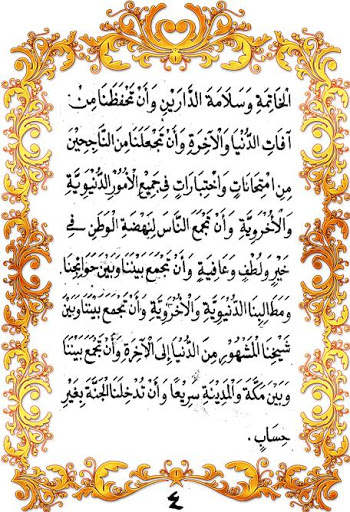 الْخَاتِمَةِ وَسَلَامَةَ الدَّارَيْنِ وَأَنْ تَحْفَظَنَا مِنْ
آفَاتِ الدُّنْيَا وَالْآخِرَةِ وَأَنْ تَجْعَلَنَا مِنَ النَّاجِحِيْنَ
مِنِ امْتِحَانَاتٍ وَاخْتِبَارَاتٍ فِي جَمِيْعِ الْأُمُوْرِ الدُّنْيَوِيَّةِ
وَالْأُخْرَوِيَّةِ وَأَنْ تَجْمَعَ النَّاسَ لِنَهْضَةِ الْوَطَنِ فِي
خَيْرٍ وَلُطْفٍ وَعَافِيَةٍ وَأَنْ تَجْمَعَ بَيْنَنَا وَبَيْنَ حَوَائِجِنَا
وَمَطَالِبِنَا الدُّنْيَوِيَّةِ وَالْأُخْرَوِيَّةِ وَأَنْ تَجْمَعَ بَيْنَنَا وَبَيْنَ
شَيْخِنَا الْمَشْهُوْرِ مِنَ الدُّنْيَا إِلَى الْآخِرَةِ وَأَنْ تَجْمَعَ بَيْنَنَا
وَبَيْنَ مَكَّةَ وَالْمَدِيْنَةِ سَرِيْعًا وَأَنْ تُدْخِلَنَا الْجَنَّةَ بِغَيْرِ
حِسَابٍ .
٤